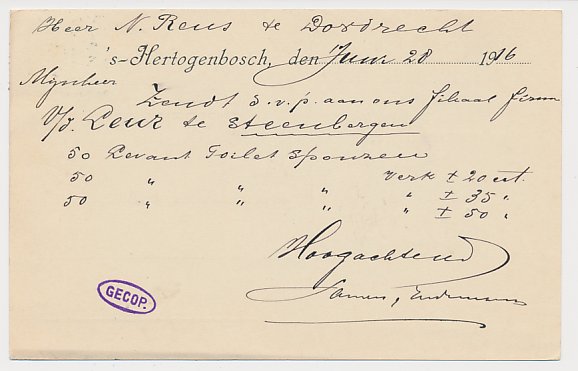 Heer N. Reus te Dordrecht
's-Hertogenbosch, den Juni 28 1916
Mijnheer
Zendt s.v.p. aan ons filiaal firma
V/d. Leur te Steenbergen
50 Levant Toilet Sponzen
50 " " " verk ± 20 ct.
50 " " " " ± 35 "
" ± 50 "
Hoogachtend
GECOP.